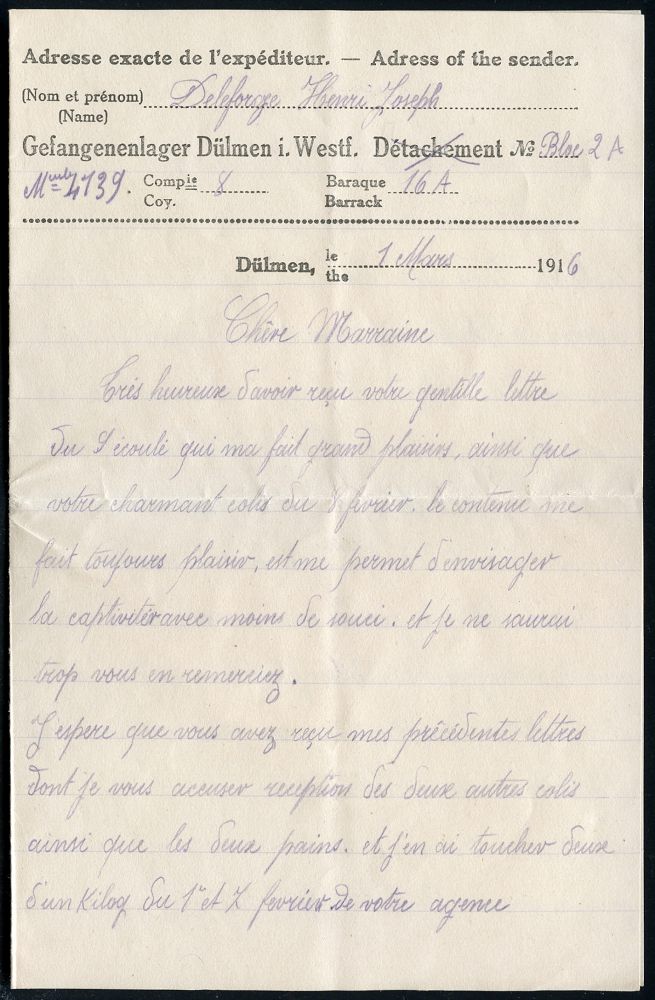 Adresse exacte de l'expéditeur. — Adress of the sender.
(Nom et prénom) Deleforge Henri Joseph
(Name)
Gefangenenlager Dülmen i. Westf. Détachement № Bloc 2 A
Mle 4739. Compie 8 Baraque 16 A
Coy. Barrack
Dülmen, le 1 Mars 1916
the
Chère Marraine
Très heureux d'avoir reçu votre gentille lettre
du écoulé qui ma fait grand plaisirs, ainsi que
votre charmant colis du fevrier. le contenu me
fait toujours plaisir, est me permet d'envisager
la captivitér avec moins de souci. et je ne saurai
trop vous en remerciez.
J espere que vous avez reçu mes précédentes lettres
dont je vous accuser reception des deux autres colis
ainsi que les deux pains. et j'en ai toucher deux
d'un Kilog du 1er et 7 fevrier de votre agence